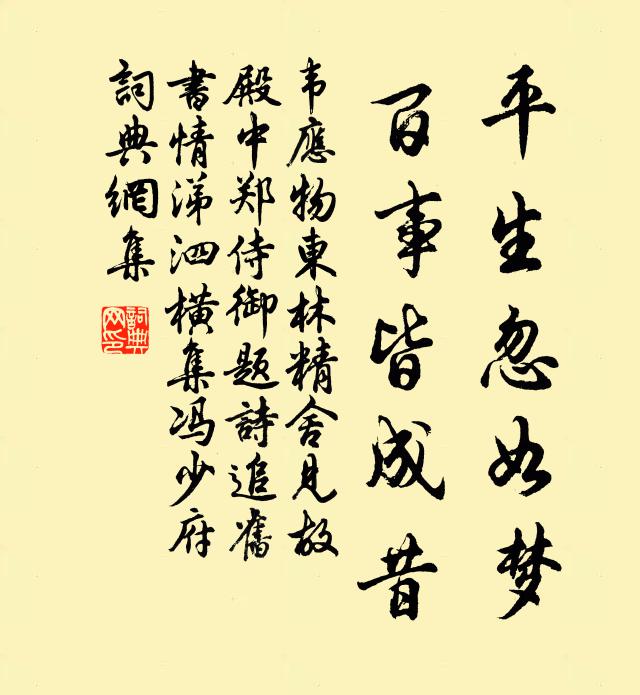 平生忽如梦
百事皆成昔
韦應物東林精舍見故
殿中郑侍御题詩追舊
書情涕泗横集冯少府
詞典網集
詞典网印